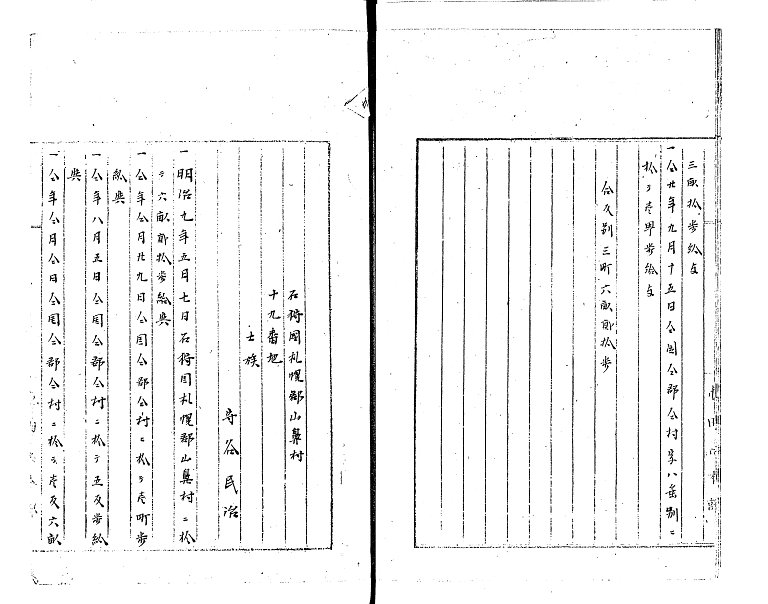 三畝拾歩給与
一仝廿年九月十五日仝国仝郡仝村字八垂別ニ
於テ壱畢歩給与
合反別三町六畝廿拾歩
石狩国札幌郡山鼻村
十九番地
士族
守谷民治
一明治九年五月七日石狩国札幌郡山鼻村ニ於
テ六畝廿拾歩給与
一仝年仝月廿九日仝国仝郡仝村ニ於テ壱町歩
給与
一仝年八月五日仝国仝郡仝村ニ於テ五反歩給
与
一仝年仝月仝日仝国仝郡仝村ニ於テ壱反六畝